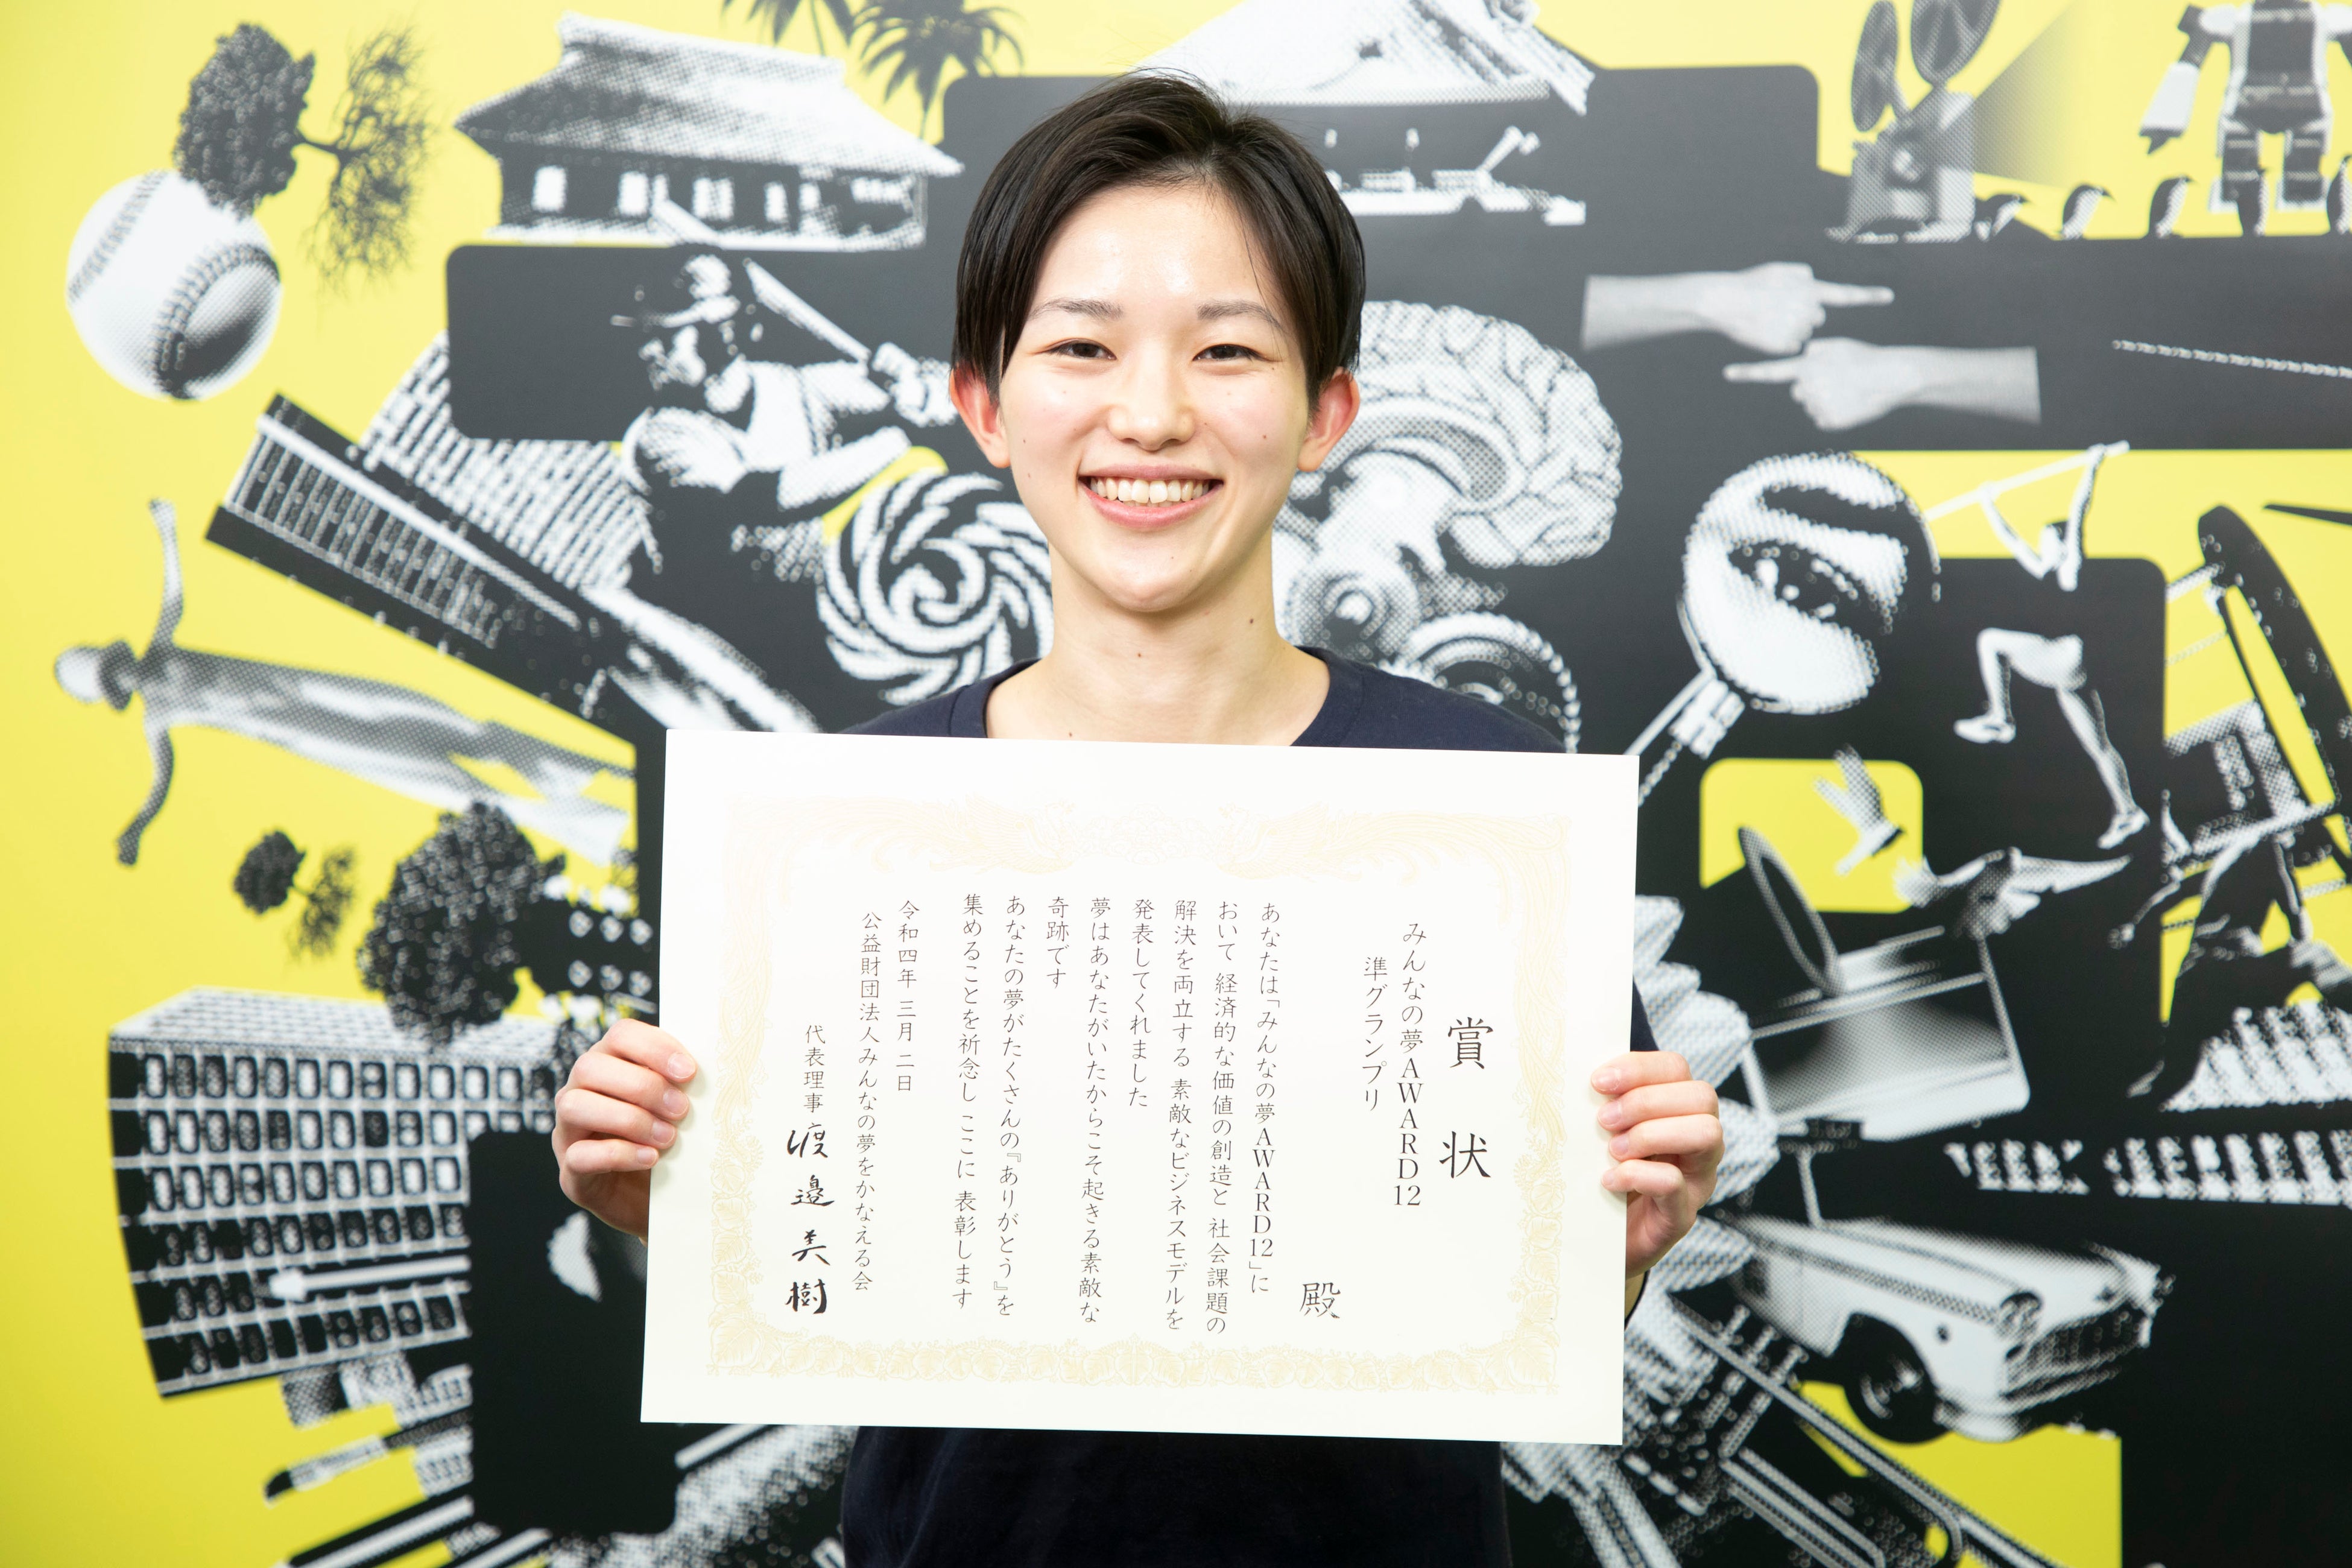 賞状
みんなの夢AWARD12
準グランプリ
殿
あなたは「みんなの夢AWARD12」に
おいて 経済的な価値の創造と 社会課題の
解決を両立する 素敵なビジネスモデルを
発表してくれました
夢はあなたがいたからこそ起きる素敵な
奇跡です
あなたの夢がたくさんの『ありがとう』を
集めることを祈念し ここに 表彰します
令和四年 三月 二日
公益財団法人みんなの夢をかなえる会
代表理事 渡邉美樹